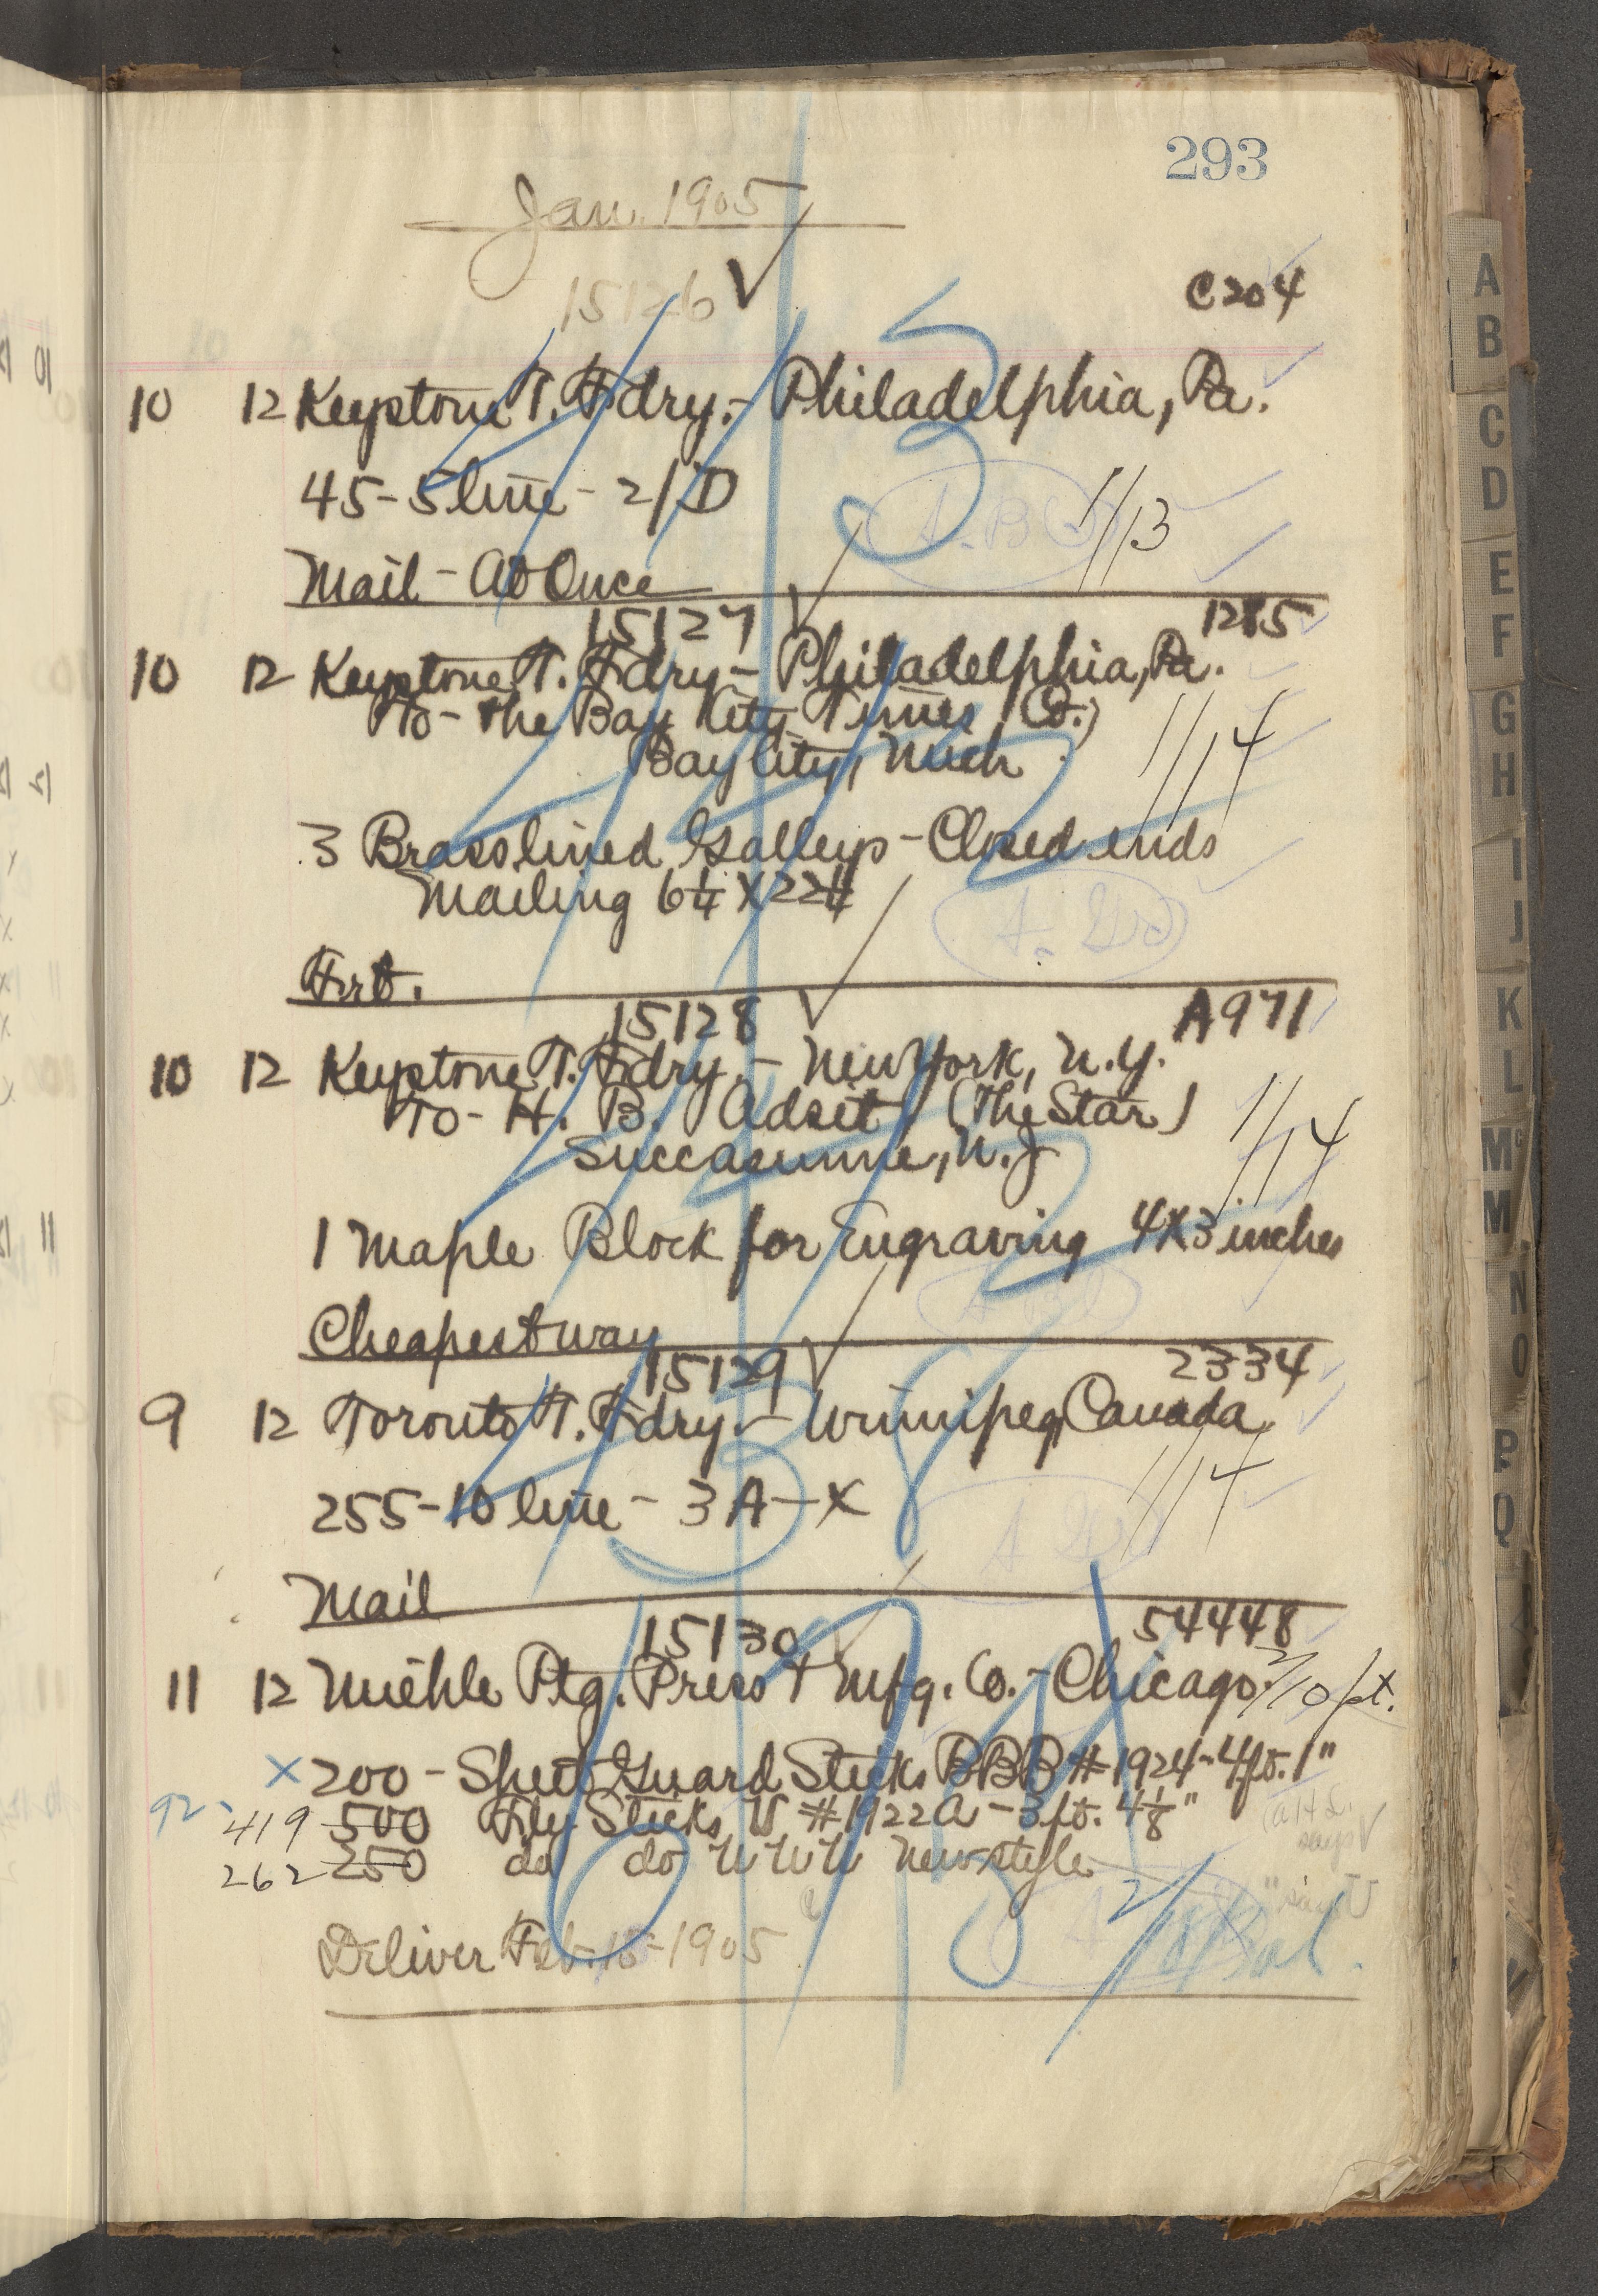 293
Jan. 1905
15126 ✓
C204
10 12 Keystone T. Fdry. - Philadelphia, Pa.
45 - 5 line - 2/D
1/13
Mail - At Once
15127 ✓ 1285
10 12 Keystone T. Fdry - Philadelphia, Pa.
To - The Bay City Times Co.,
Bay City, Mich
1/14
3 Brass lined Galleys - Closed ends
Mailing 6¼ X 22¼
Frt.
15128 ✓ A971
10 12 Keystone T. Fdry. - New York, N.Y.
To - H. B. Adsit (The Star)
Succasunna, N.J.
1/14
1 Maple Block for Engraving 4X3 inches
Cheapest way
15129 ✓ 2334
9 12 Toronto T. Fdry. - Winnipeg, Canada
1/14
255 - 10 line - 3A - X
Mail
15130 54448
11 12 Miehle Ptg. Press & Mfg. Co. - Chicago. 2/10 pt.
X 200 - Sheet Guard Sticks BBB # 1924 - 4 ft. 1"
92 419 500 Fly Sticks U # 1922A - 3 ft. 4⅛"
262 250 do do New style
Deliver Feb. 15 - 1905
2/18 Bal.
A
B
C
D
E
F
G
H
I
J
K
L
Mc
M
N
O
P
Q